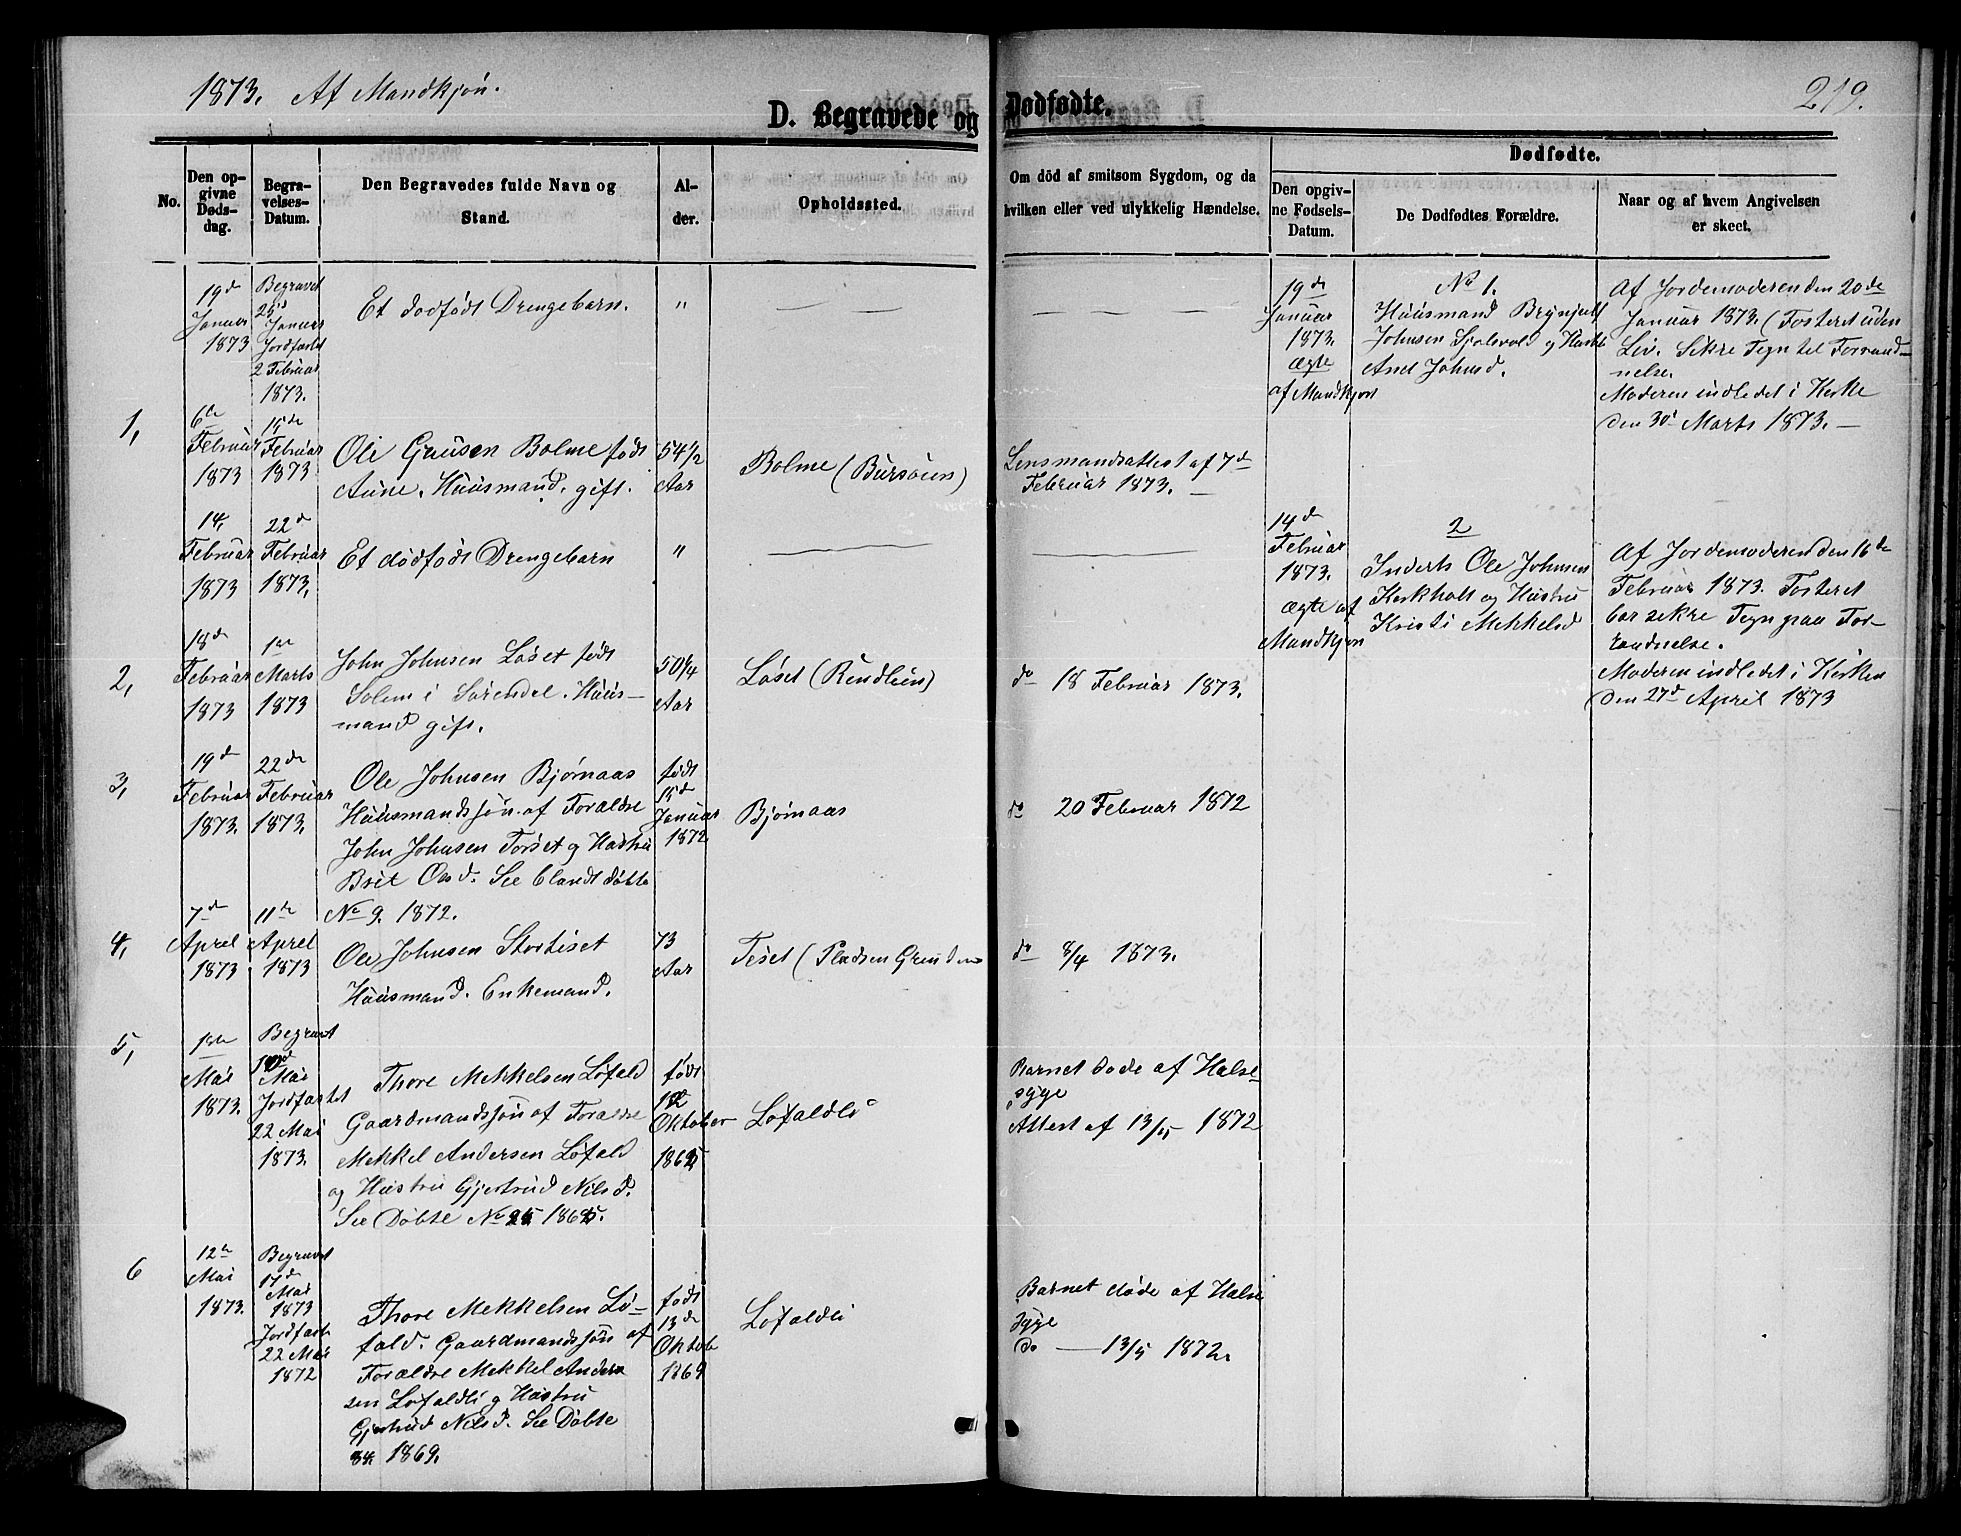 1873. Af Mandkjøn.
219.
D. Begravede og Dødfødte.
No.
Den op-
givne
Døds-
dag.
Begra-
velses-
Datum.
Den Begravedes fulde Navn og
Stand.
Al-
der.
Opholdssted.
Om død af smitsom Sygdom, og da
hvilken eller ved ulykkelig Hændelse.
Dødfødte.
Den opgiv-
ne Fødsels-
Datum.
De Dødfødtes Forældre.
Naar og af hvem Angivelsen
er skeet.
19d
Januar
1873
Begravet
25d
Januar
Jordfæstet
2 Februar
1873.
Et dødfødt Drengebarn.
"
19de
Januar
1873.
Ægte
af Mandkjøn
No 1.
Huusmand Brynjulf
Johnsen
Ane Johnsd.
Af Jordemoderen den 20de
Januar 1873. (Fosteret uden
Liv. Sikre Tegn til Forraad-
nelse.
Moderen indledet i Kirke
den 30d Marts 1873. —
1,
6te
Februar
1873
15de
Februar
1873
Ole Bolme født
Aune. Huusmand. gift.
54 1/2
Aar
Bolme (Bursøien)
Lensmandsattest af 7de
Februar 1873. —
14,
Februar
1873
22d
Februar
1873,
Et dødfødt Drengebarn
"
14de
Februar
1873.
Ægte af
Mandkjøn
2
Inderts Ole Johnsen
Kirkholt og Hustru
Kristi Mekkelsd
Af Jordemoderen den 16de
Februar 1873. Fosteret
bar sikre Tegn paa For-
raadnelse.
Moderen indledet i Kirken
den 27d April 1873
2,
18d
Februar
1873
1ste
Marts
1873
John Johnsen Løset født
Solem i Surendal. Huus-
mand gift.
50 1/4
Aar
Løset (Rendlien)
do 18 Februar 1873.
3,
19de
Februar
1873.
22de
Februar
1873.
Ole Johnsen Bjørnaas
Huusmandssøn af Forældre
John Johnsen Torset og Hustru
Brit Olsd. See blandt døbte
No 9. 1872.
født
15d
Januar
1872
Bjørnaas
do 20 Februar 1872
4,
7de
Aprel
1873
11te
Aprel
1873
Ole Johnsen Stortiset
Huusmand. Enkemand.
73
Aar
Teset (Pladsen Grinden
do 8/4 1873.
5,
1ste
Mai
1873.
Begravet
Mai
Jordfæstet
22 Mai
1873.
Thore Mekkelsen Løfald
Gaardmandssøn af Forældre
Mekkel Andersen Løfald
og Hustru Gjertrud Nilsd.
See Døbte No 25 1865.
født
Oktober
1865
Løfaldli
Barnet døde af Halse-
syge
Attest af 13/5 1872
6
12te
Mai
1873.
Begravet
17de
Mai
1873
Jordfæst
22 Mai
1872
Thore Mekkelsen Lø-
fald. Gaardmandssøn af
Forældre Mekkel Anders
sen Løfaldli og Hustru
Gjertrud Nilsd. See Døbte
34. 1869.
født
13de
Oktob
1869
Løfaldli
Barnet døde af Halse
syge
do — 13/5 1872.